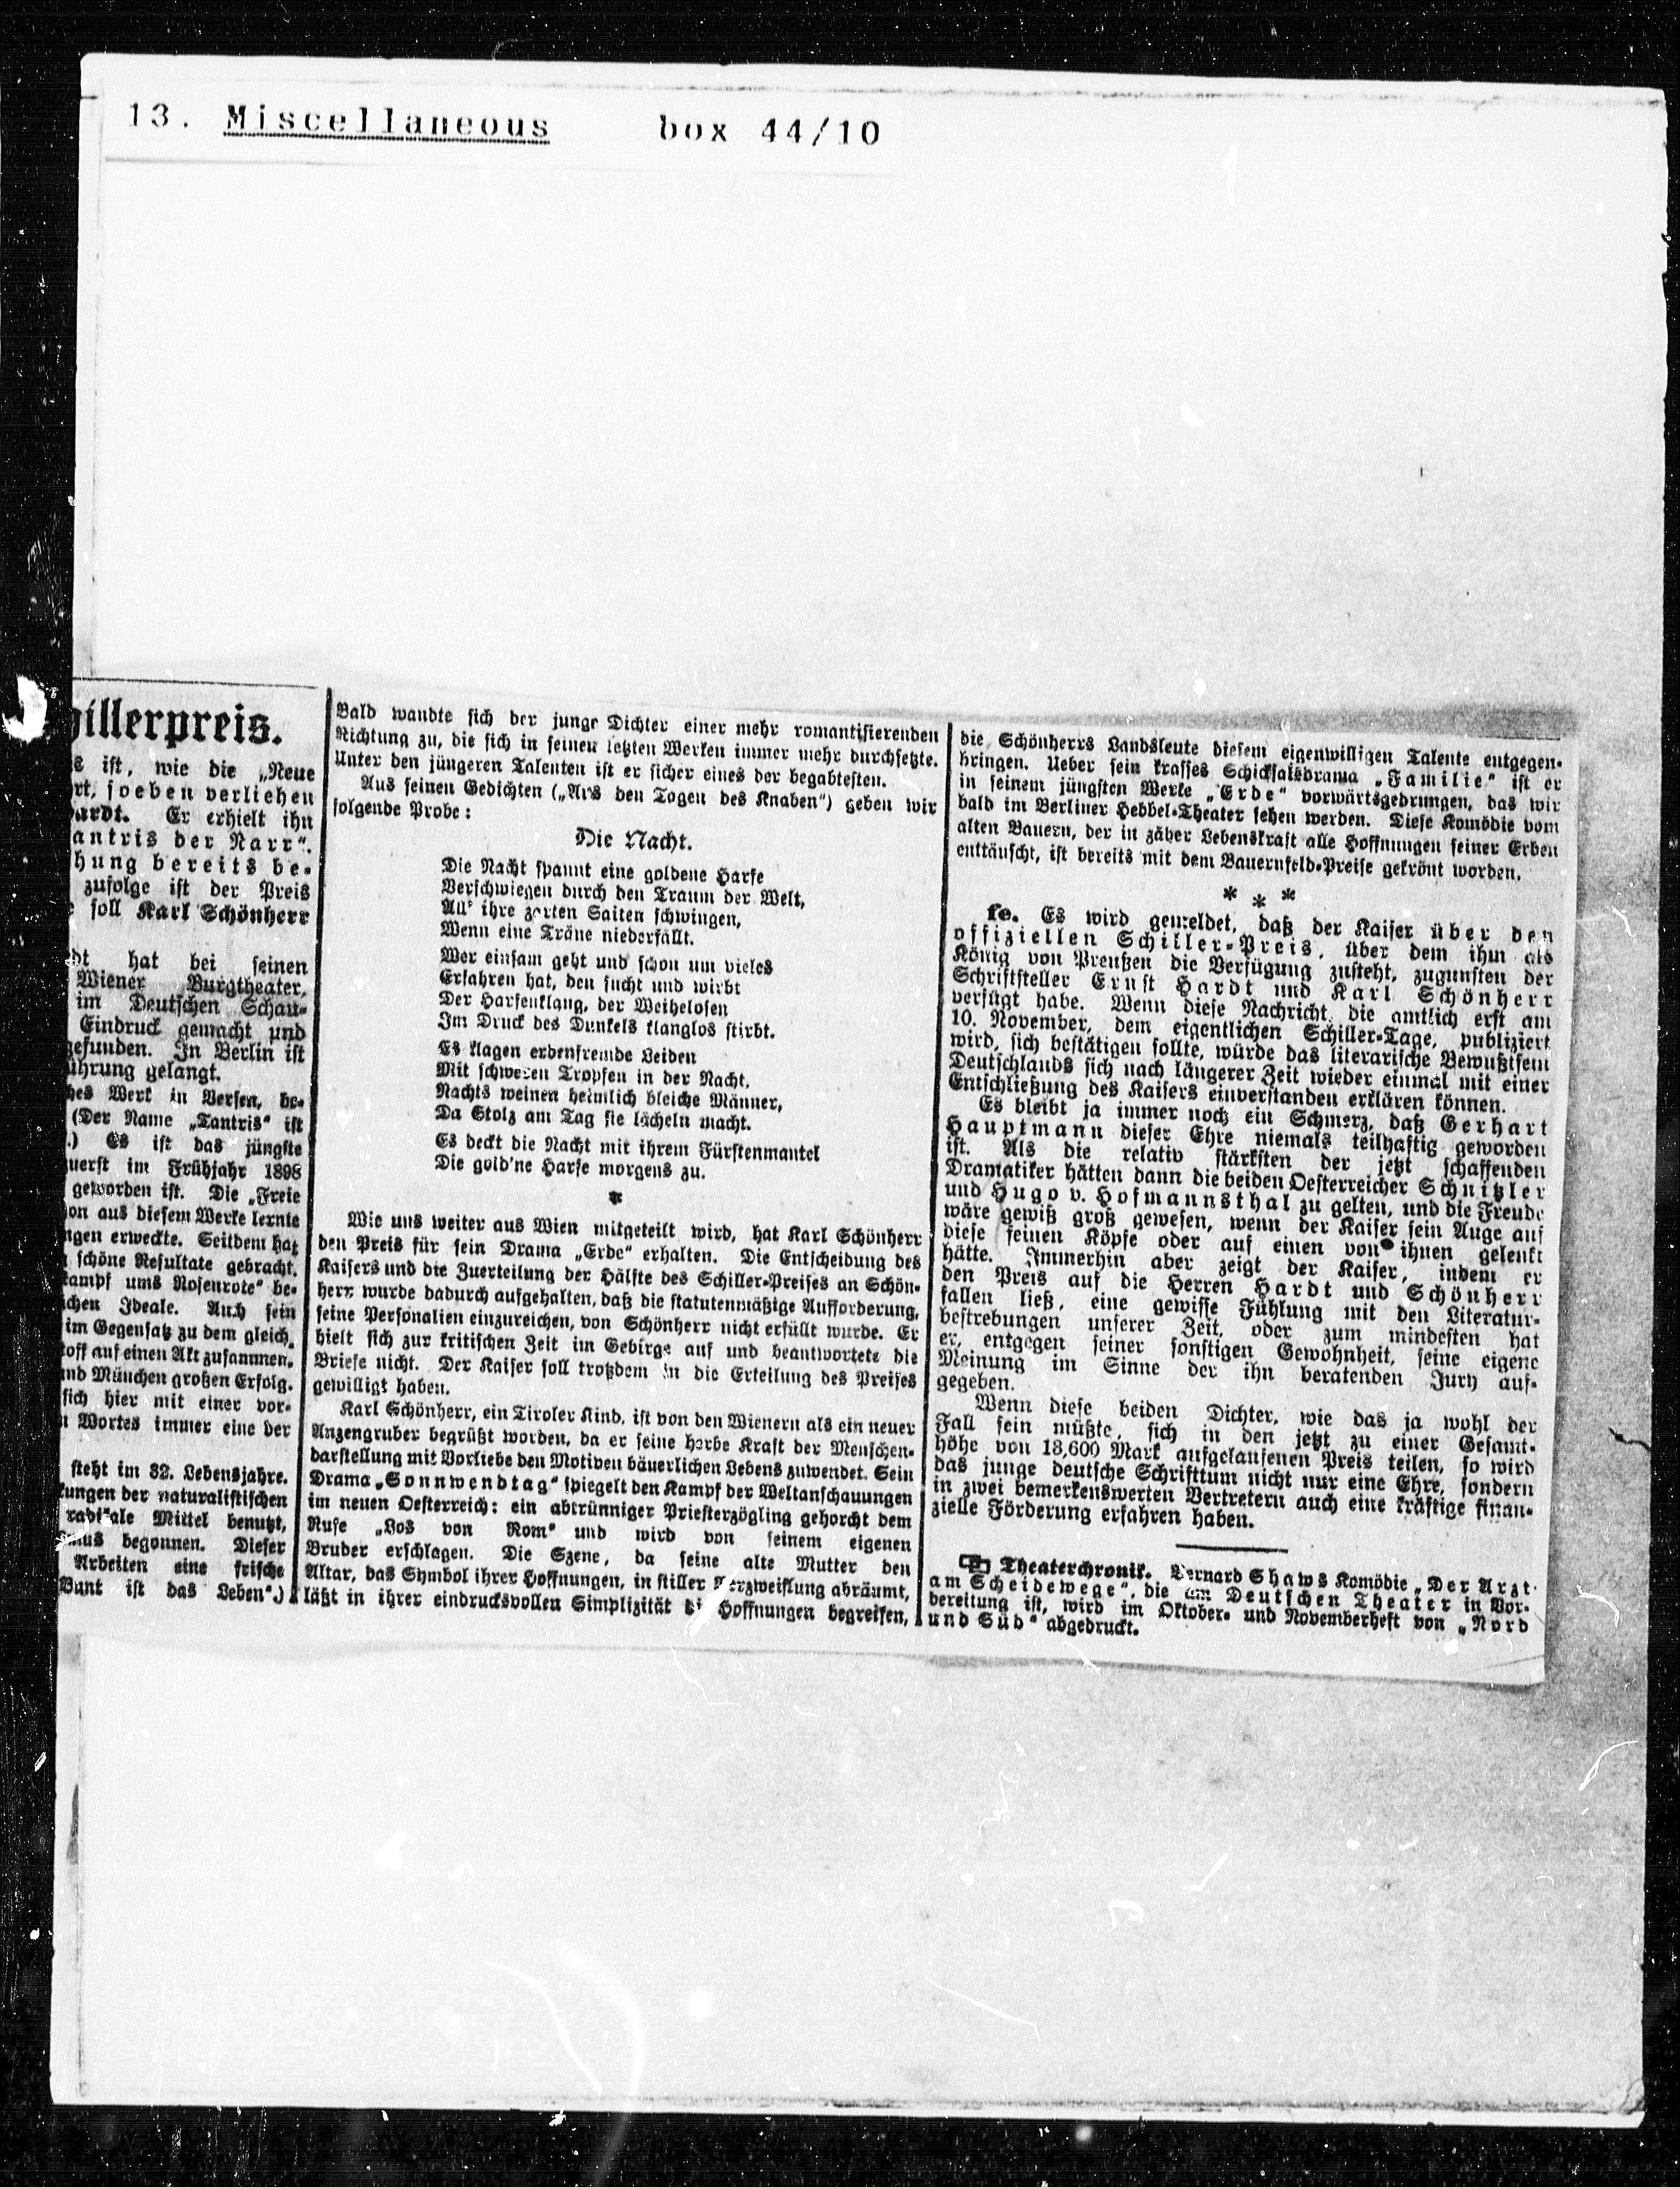 13. Miscellaneous box 44/10
hillerpreis.
s ist, wie die „Neue
rt, soeben verliehen
ardt. Er erhielt ihn
antris der Narr“.
hung bereits be-
zufolge ist der Preis
soll Karl Schönherr
dt hat bei seinen
Wiener Burgtheater,
im Deutschen Schau-
Eindruck gemacht und
gefunden. In Berlin ist
ührung gelangt.
hes Werk in Versen, be-
(Der Name „Tantris“ ist
.) Es ist das jüngste
zuerst im Frühjahr 1898
geworden ist. Die „Freie
on aus diesem Werke lernte
ngen erweckte. Seitdem hat
schöne Resultate gebracht.
kampf ums Rosenrote“ be-
chen Ideale. Auch sein
im Gegensatz zu dem gleich
toff auf einen Akt zusammen.
und München großen Erfolg.
sich hier mit einer vor-
n Wortes immer eine der
steht im 32. Lebensjahre.
tungen der naturalistischen
radikale Mittel benutzt,
mus begonnen. Dieser
Arbeiten eine frische
Bunt ist das Leben“.)
Bald wandte sich der junge Dichter einer mehr romantisierenden
Richtung zu, die sich in seinen letzten Werken immer mehr durchsetzte.
Unter den jüngeren Talenten ist er sicher eines der begabtesten.
Aus seinen Gedichten („Aus den Tagen des Knaben“) geben wir
folgende Probe:
Die Nacht.
Die Nacht spannt eine goldene Harfe
Verschwiegen durch den Traum der Welt,
All' ihre zarten Saiten schwingen,
Wenn eine Träne niederfällt.
Wer einsam geht und schon um vieles
Erfahren hat, den sucht und wirbt
Der Harfenklang, der Weihelosen
Im Druck des Dunkels klanglos stirbt.
Es klagen erdenfremde Leiden
Mit schweren Tropfen in der Nacht,
Nachts weinen heimlich bleiche Männer,
Da Stolz am Tag sie lächeln macht.
Es deckt die Nacht mit ihrem Fürstenmantel
Die gold'ne Harfe morgens zu.
*
Wie uns weiter aus Wien mitgeteilt wird, hat Karl Schönherr
den Preis für sein Drama „Erde“ erhalten. Die Entscheidung des
Kaisers und die Zuerteilung der Hälfte des Schiller-Preises an Schön-
herr wurde dadurch aufgehalten, daß die statutenmäßige Aufforderung,
seine Personalien einzureichen, von Schönherr nicht erfüllt wurde. Er
hielt sich zur kritischen Zeit im Gebirge auf und beantwortete die
Briefe nicht. Der Kaiser soll trotzdem in die Erteilung des Preises
gewilligt haben.
Karl Schönherr, ein Tiroler Kind, ist von den Wienern als ein neuer
Anzengruber begrüßt worden, da er seine herbe Kraft der Menschen-
darstellung mit Vorliebe den Motiven bäuerlichen Lebens zuwendet. Sein
Drama „Sonnwendtag“ spiegelt den Kampf der Weltanschauungen
im neuen Oesterreich: ein abtrünniger Priesterzögling gehorcht dem
Rufe „Los von Rom“ und wird von seinem eigenen
Bruder erschlagen. Die Szene, da seine alte Mutter den
Altar, das Symbol ihrer Hoffnungen, in stiller Verzweiflung abräumt,
läßt in ihrer eindrucksvollen Simplizität die Hoffnungen begreifen,
die Schönherrs Landsleute diesem eigenwilligen Talente entgegen-
bringen. Ueber sein krasses Schicksalsdrama „Familie“ ist er
in seinem jüngsten Werke „Erde“ vorwärtsgedrungen, das wir
bald im Berliner Hebbel-Theater sehen werden. Diese Komödie vom
alten Bauern, der in zäher Lebenskraft alle Hoffnungen seiner Erben
enttäuscht, ist bereits mit dem Bauernfeld-Preise gekrönt worden.
* * *
fe. Es wird gemeldet, daß der Kaiser über den
offiziellen Schiller-Preis, über dem ihm als
König von Preußen die Verfügung zusteht, zugunsten der
Schriftsteller Ernst Hardt und Karl Schönherr
verfügt habe. Wenn diese Nachricht, die amtlich erst am
10. November, dem eigentlichen Schiller-Tage, publiziert
wird, sich bestätigen sollte, würde das literarische Bewußtsein
Deutschlands sich nach längerer Zeit wieder einmal mit einer
Entschließung des Kaisers einverstanden erklären können.
Es bleibt ja immer noch ein Schmerz, daß Gerhart
Hauptmann dieser Ehre niemals teilhaftig geworden
ist. Als die relativ stärksten der jetzt schaffenden
Dramatiker hätten dann die beiden Oesterreicher Schnitzler
und Hugo v. Hofmannsthal zu gelten, und die Freude
wäre gewiß groß gewesen, wenn der Kaiser sein Auge auf
diese feinen Köpfe oder auf einen von ihnen gelenkt
hätte. Immerhin aber zeigt der Kaiser, indem er
den Preis auf die Herren Hardt und Schönherr
fallen ließ, eine gewisse Fühlung mit den Literatur-
bestrebungen unserer Zeit, oder zum mindesten hat
er, entgegen seiner sonstigen Gewohnheit, seine eigene
Meinung im Sinne der ihn beratenden Jury auf-
gegeben.
Wenn diese beiden Dichter, wie das ja wohl der
Fall sein müßte, sich in den jetzt zu einer Gesamt-
höhe von 18,600 Mark aufgelaufenen Preis teilen, so wird
das junge deutsche Schrifttum nicht nur eine Ehre, sondern
in zwei bemerkenswerten Vertretern auch eine kräftige finan-
zielle Förderung erfahren haben.
Theaterchronik. Bernard Shaws Komödie „Der Arzt
am Scheidewege“, die im Deutschen Theater in Vor-
bereitung ist, wird im Oktober- und Novemberheft von „Nord
und Süd“ abgedruckt.